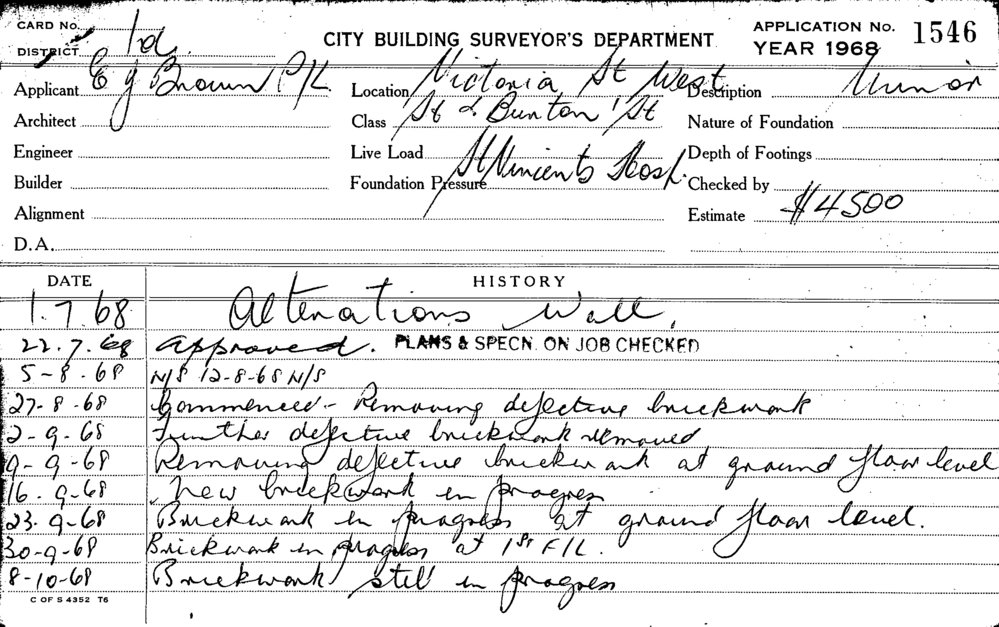 CARD No.
DISTRICT 1d.
CITY BUILDING SURVEYOR'S DEPARTMENT
APPLICATION No. 1546
YEAR 1968
Applicant E G Brown P/L. Location Victoria St West Description Minor
Architect Class St & Burton St Nature of Foundation
Engineer Live Load St Vincents Hosp. Depth of Footings
Builder Foundation Pressure Checked by
Alignment Estimate $4500
D.A.
DATE HISTORY
1.7.68 Alterations Wall.
22.7.68 Approved. PLANS & SPECN. ON JOB CHECKED
5-8-68 N/S 12-8-68 N/S
27-8-68 Commenced - Removing defective brickwork
2-9-68 Further defective brickwork removed
9-9-68 Removing defective brickwork at ground floor level
16.9.68 New brickwork in progress
23.9-68 Brickwork in progress at ground floor level.
30-9-68 Brickwork in progress at 1st F/L.
8-10-68 Brickwork still in progress
C OF S 4352 T6